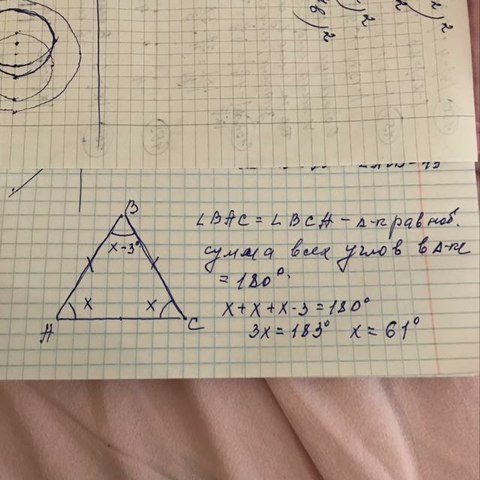 B
x-3°
x
x
A
C
∠BAC = ∠BCA - Δ-к равноб.
сумма всех углов в Δ-ке
= 180°.
x+x+x-3 = 180°
3x = 183° x = 61°